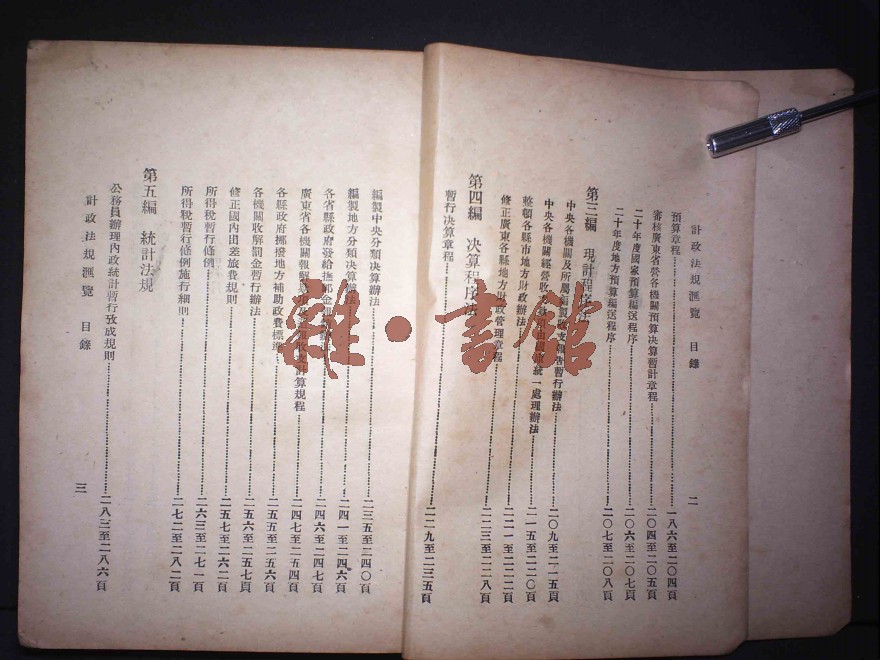 計政法規滙覽　目錄
二
預算章程…………一八六至二〇四頁
審核廣東省營各機關預算決算暫計章程…………二〇四至二〇五頁
二十年度國家預算編送程序…………二〇六至二〇七頁
二十年度地方預算編送程序…………二〇七至二〇八頁
第三編　現計程序法
中央各機關及所屬編製收支報告暫行辦法…………二〇九至二一五頁
中央各機關經管收　統一處理辦法
整頓各縣市地方財政辦法…………二一五至二二〇頁
修正廣東各縣地方財政管理章程…………二二一至二二二頁
二二三至二二八頁
第四編　決算程序法
暫行決算章程…………二二九至二三五頁
編製中央分類決算辦法…………二三五至二四〇頁
編製地方分類決算辦法…………二四一至二四六頁
各省縣政府發給撫卹金…………二四六至二四七頁
廣東省各機關報解　計算規程…………二四七至二五四頁
各縣政府挪撥地方補助政費標準…………二五五至二五六頁
各機關收解罰金暫行辦法…………二五六至二五七頁
修正國內出差旅費規則…………二五七至二六二頁
所得稅暫行條例…………二六三至二七一頁
所得稅暫行條例施行細則…………二七二至二八二頁
第五編　統計法規
公務員辦理內政統計暫行攷成規則…………二八三至二八六頁
計政法規滙覽　目錄
三
雜·書館